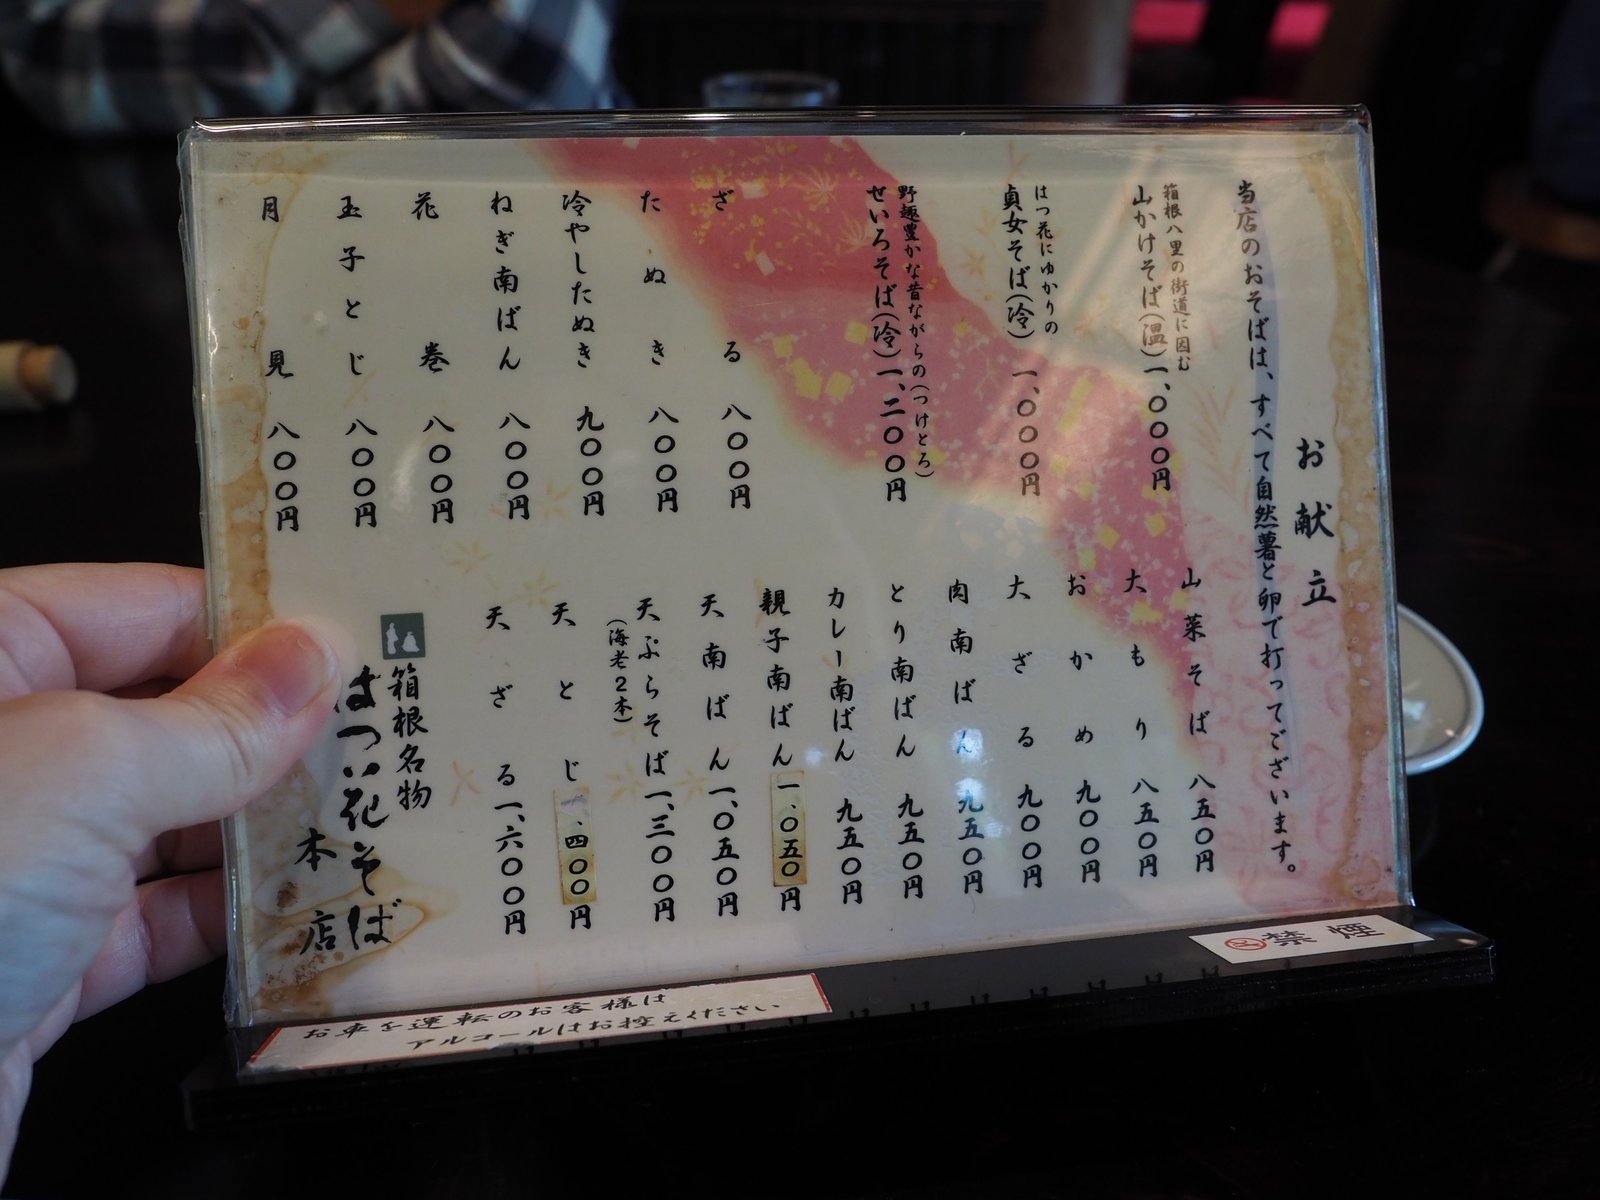 お献立
当店のおそばは、すべて自然薯と卵で打ってございます。
箱根八里の街道に因む
山かけそば(温)一、〇〇〇円
はつ花にゆかりの
貞女そば(冷)一、〇〇〇円
野趣豊かな昔ながらの(つけとろ)
せいろそば(冷)一、二〇〇円
ざる 八〇〇円
たぬき 八〇〇円
冷やしたぬき 九〇〇円
ねぎ南ばん 八〇〇円
花巻 八〇〇円
玉子とじ 八〇〇円
月見 八〇〇円
山菜そば 八五〇円
大もり 八五〇円
おかめ 九〇〇円
大ざる 九〇〇円
肉南ばん 九五〇円
とり南ばん 九五〇円
カレー南ばん 九五〇円
親子南ばん 一、〇五〇円
天南ばん 一、〇五〇円
天ぷらそば 一、三〇〇円
(海老2本)
天とじ 一、四〇〇円
天ざる 一、六〇〇円
箱根名物
はつ花そば
本店
禁煙
お車を運転のお客様は
アルコールはお控えください